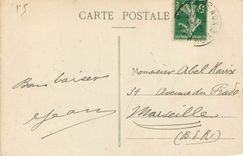 15
CARTE POSTALE
Bons baisers
Jean
Monsieur Abel
51 Avenue du Prado
Marseille
(B.d.R.)